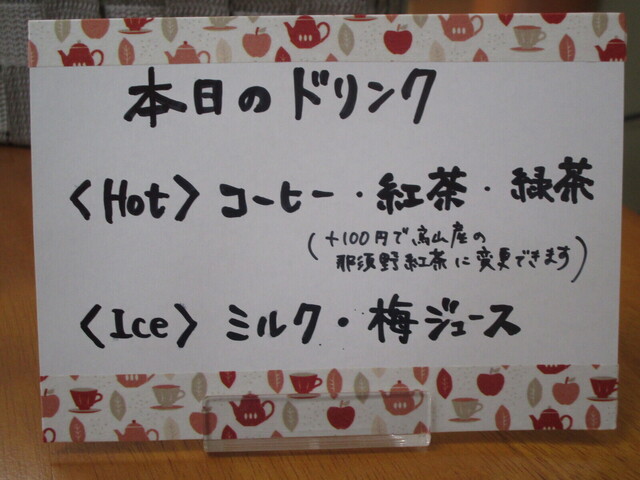 本日のドリンク
〈Hot〉 コーヒー・紅茶・緑茶
(+100円で烏山産の
那須野紅茶に変更できます)
〈Ice〉 ミルク・梅ジュース